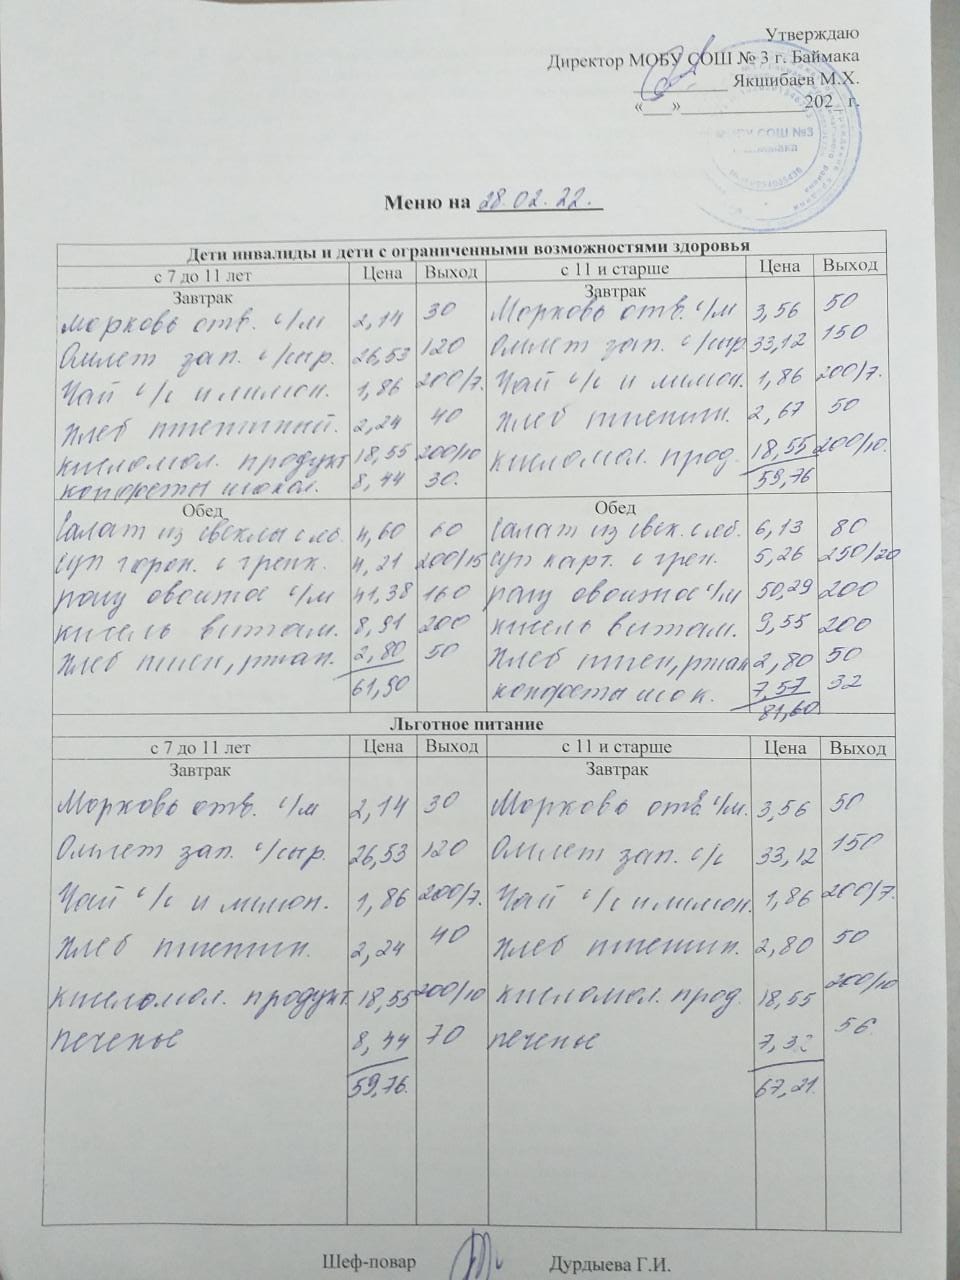 Утверждаю
Директор МОБУ СОШ № 3 г. Баймака
__________ Якшибаев М.Х.
«___»_____________202_ г.
СОШ №3
Меню на 28.02.22.
Дети инвалиды и дети с ограниченными возможностями здоровья
с 7 до 11 лет Цена Выход с 11 и старше Цена Выход
Завтрак Завтрак
Морковь отв. с/м 2,14 30 Морковь отв. с/м 3,56 50
Омлет зап. с/сыр. 26,53 120 Омлет зап. с/сыр 33,12 150
Чай с/с и лимон. 1,86 200/7. Чай с/с и лимон. 1,86 200/7.
Хлеб пшеничный. 2,24 40 Хлеб пшенич. 2,67 50
Кисломол. продукт 18,55 200/10 Кисломол. прод. 18,55 200/10.
конфеты шокол. 8,44 30. 59,76
Обед Обед
Салат из свеклы с мб. 4,60 60 Салат из свек. с мб. 6,13 80
Суп горох. с гренк. 4,21 200/15 Суп карт. с грен. 5,26 250/20
рагу овощное с/м 41,38 160 рагу овощное с/м 50,29 200
кисель витам. 8,91 200 кисель витам. 9,55 200
Хлеб пшен, ржан. 2,80 50 Хлеб пшен, ржан 2,80 50
61,90 конфеты шок. 7,57 32
81,60
Льготное питание
с 7 до 11 лет Цена Выход с 11 и старше Цена Выход
Завтрак Завтрак
Морковь отв. с/м 2,14 30 Морковь отв. с/м. 3,56 50
Омлет зап. с/сыр. 26,53 120 Омлет зап. с/с 33,12 150
Чай с/с и лимон. 1,86 200/7. Чай с/с и лимон. 1,86 200/7.
Хлеб пшенич. 2,24 40 Хлеб пшенич. 2,80 50
Кисломол. продукт. 18,55 200/10 Кисломол. прод. 18,55 200/10
Печенье 8,44 70 печенье 7,32 56
59,76. 67,21.
Шеф-повар Дурдыева Г.И.